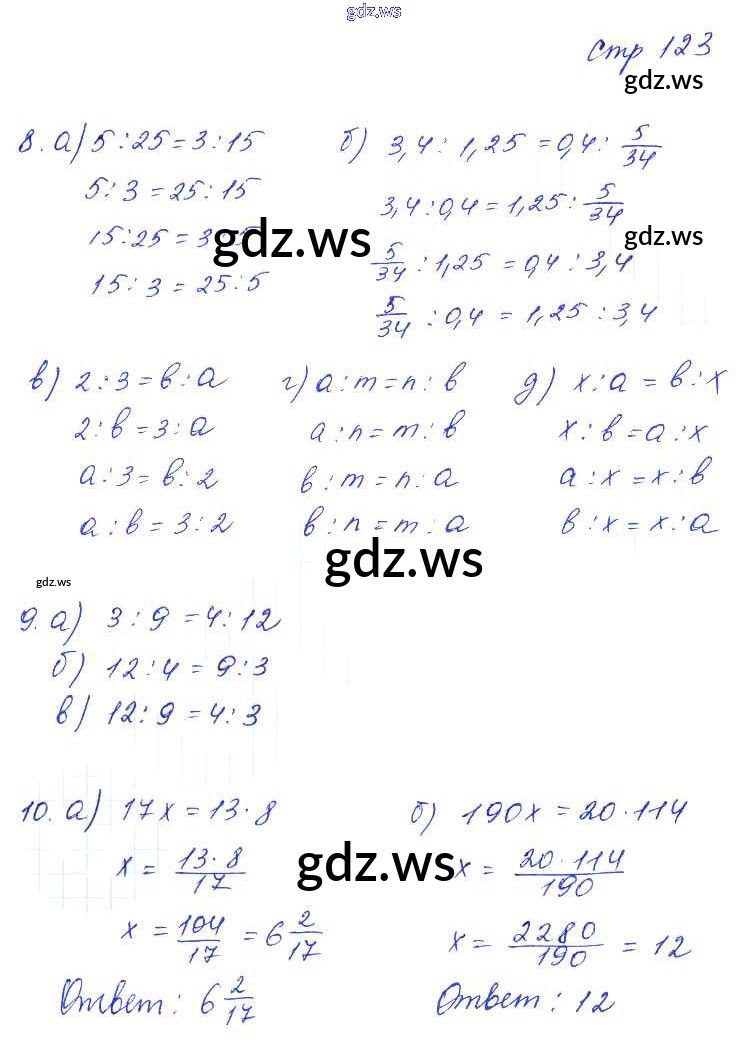 gdz.ws
стр 123
gdz.ws
8. а) 5 : 25 = 3 : 15
5 : 3 = 25 : 15
15 : 25 = 3
15 : 3 = 25 : 5
gdz.ws
б) 3,4 : 1,25 = 0,4 : 5/34
3,4 : 0,4 = 1,25 : 5/34
gdz.ws
5/34 : 1,25 = 0,4 : 3,4
5/34 : 0,4 = 1,25 : 3,4
в) 2 : 3 = b : a
2 : b = 3 : a
a : 3 = b : 2
a : b = 3 : 2
г) a : m = n : b
a : n = m : b
b : m = n : a
b : n = m : a
д) x : a = b : x
x : b = a : x
a : x = x : b
b : x = x : a
gdz.ws
gdz.ws
9. а) 3 : 9 = 4 : 12
б) 12 : 4 = 9 : 3
в) 12 : 9 = 4 : 3
10. а) 17x = 13 · 8
x = 13 · 8/17
x = 104/17 = 6 2/17
Ответ: 6 2/17
gdz.ws
б) 190x = 20 · 114
x = 20 · 114/190
x = 2280/190 = 12
Ответ: 12